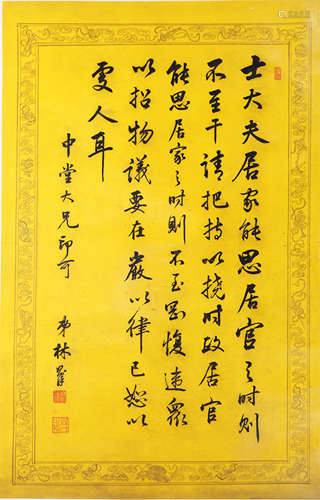 士大夫居家能思居官之时则
不至干请把持以挠时政居官
能思居家之时则不至罔愎违众
以招物議要在嚴以律己恕以
處人耳
中堂大兄印可
弟林